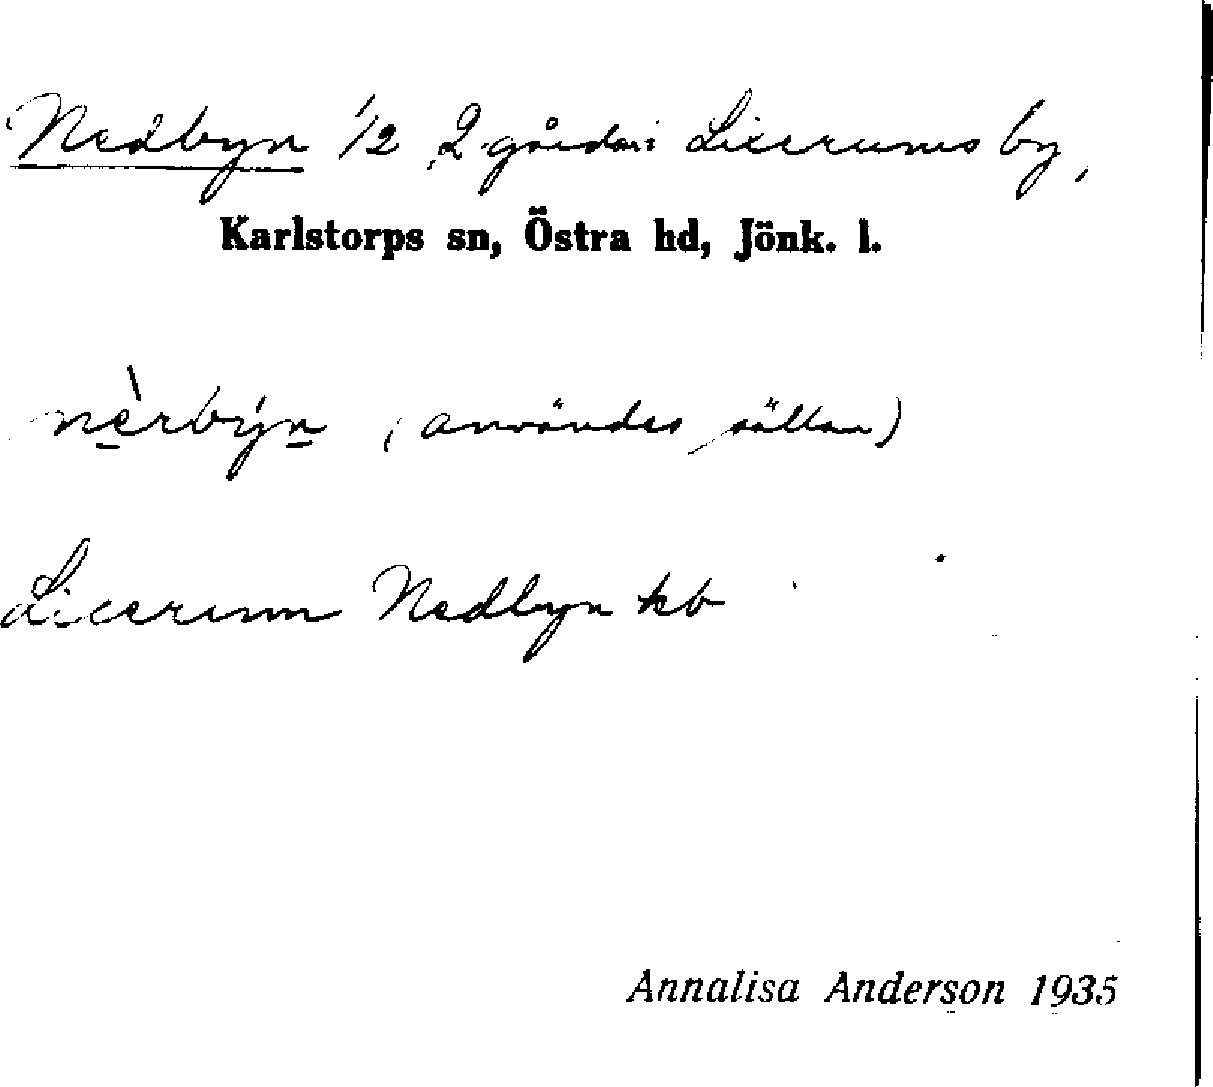 Nedbyn 1/2, 2 gårdar i Licerums by,
Karlstorps sn, Östra hd, Jönk. l.
nèrbýn (användes sällan)
Licerum Nedbyn kb
Annalisa Anderson 1935